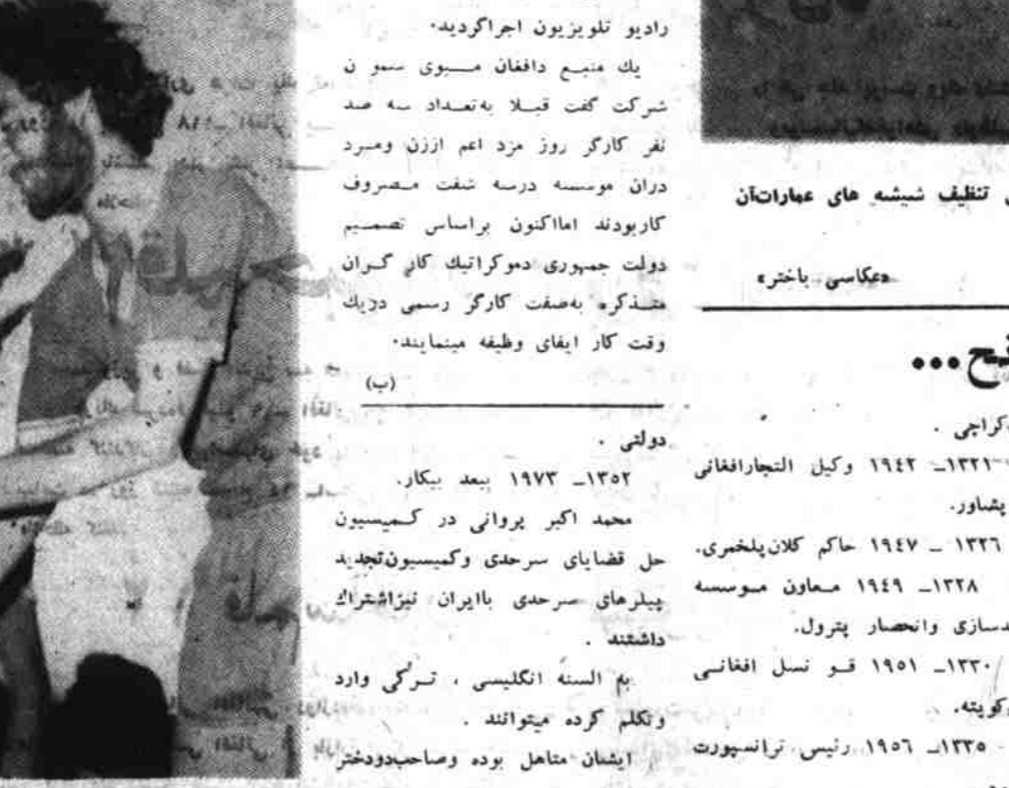 ﺗﻨﻈﯿﻒ شیشه های عماراتآن
«عکاسی باختر»
...
کراچی .
۱۳۲۱ـ ۱۹۴۲ وکیل التجارافغانی
پشاور.
۱۳۲۶ ـ ۱۹۴۷ حاکم کلان پلخمری.
۱۳۲۸ـ ۱۹۴۹ معاون موسسه
وانحصار پترول.
۱۳۳۰ـ ۱۹۵۱ قو نسل افغانی
کویته.
۱۳۳۵ـ ۱۹۵۶ رئیس ترانسپورت
رادیو تلویزیون اجراگردید.
یك منبع دافغان
شرکت گفت قبلا به تعداد سه صد
نفر کارگر روز مزد اعم اززن ومرد
دران موسسه درسه شفت مصروف
کاربودند امااکنون براساس تصمیم
دولت جمهوری دموکراتیك کار گران
متذکره به صفت کارگر رسمی دریك
وقت کار ایفای وظیفه مینمایند.
(ب)
دولتی .
۱۳۵۲ـ ۱۹۷۳ ببعد بیکار.
محمد اکبر پروانی در کمیسیون
حل قضایای سرحدی وکمیسیون تجدید
پیلرهای سرحدی باایران نیزاشتراك
داشتند .
به السنه انگلیسی ، ترکی وارد
وتکلم کرده میتوانند .
ایشان متاهل بوده وصاحب دودختر